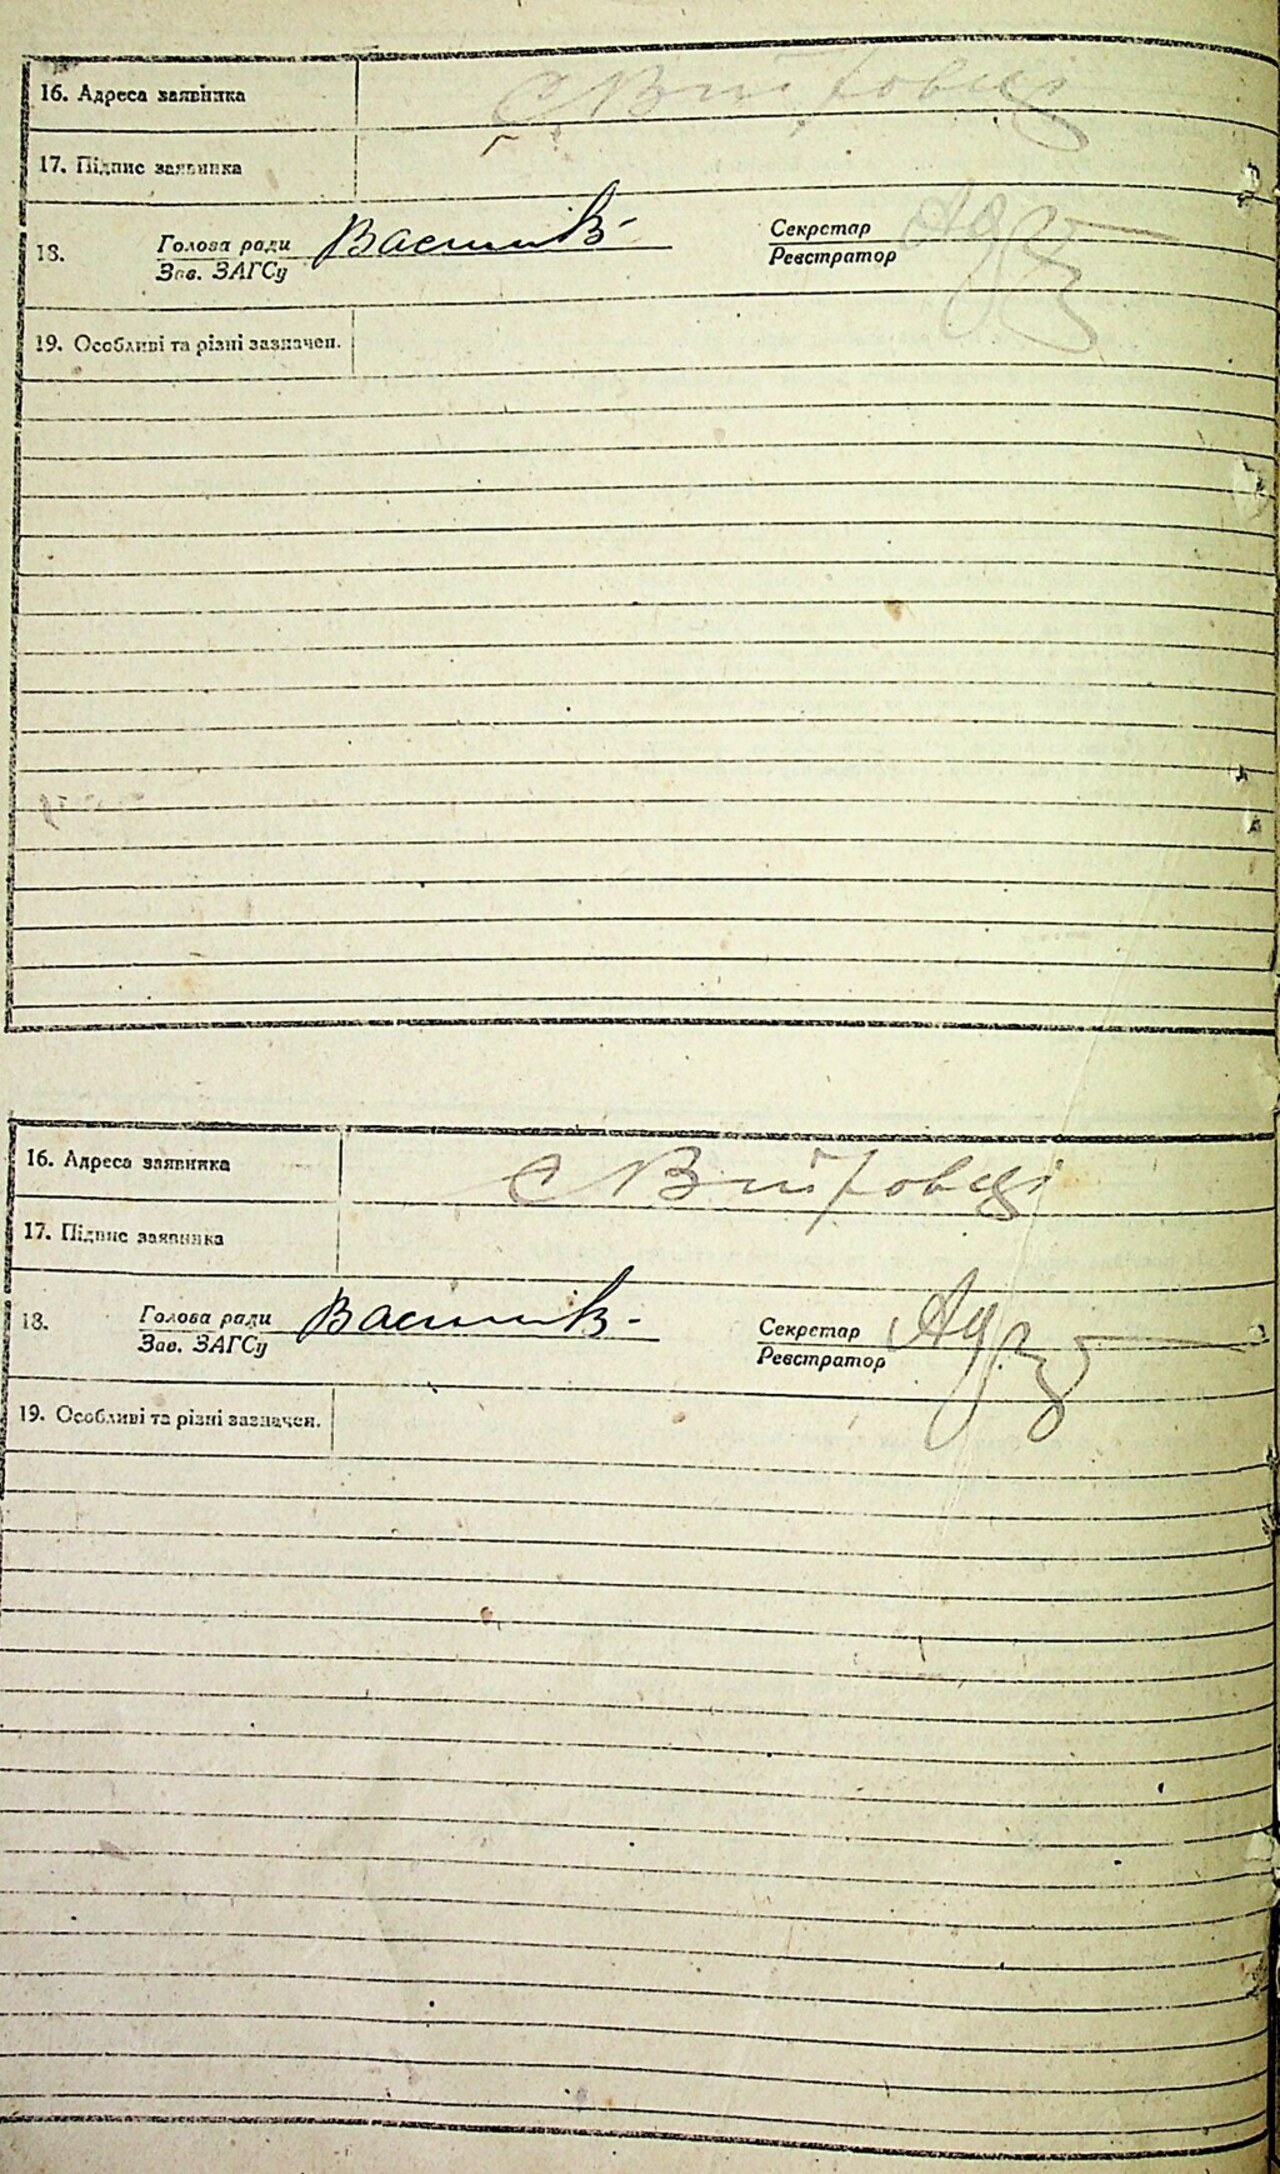 16. Адреса заявника с Войтовці
17. Підпис заявника
18. Голова ради Секретар
Зав. ЗАГСу Реєстратор
19. Особливі та різні зазначен.
16. Адреса заявника с Войтовці
17. Підпис заявника
18. Голова ради Секретар
Зав. ЗАГСу Реєстратор
19. Особливі та різні зазначен.